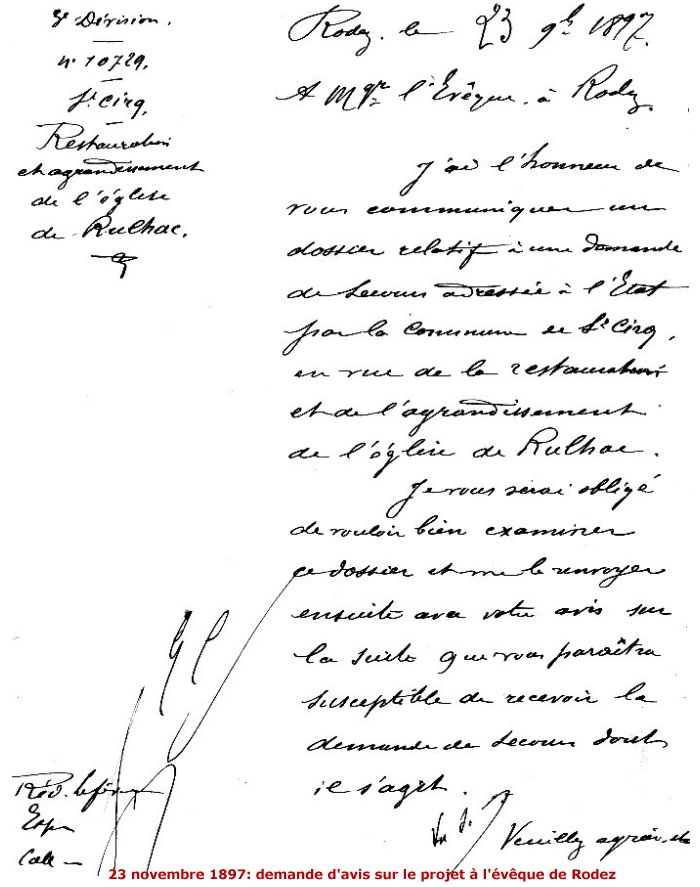 3e Division.
n° 10729.
St Cirq.
Restauration
et agrandissement
de l'église
de Rulhac.
Rodez, le 23 9b 1897.
A Mgr l'Evêque, à Rodez.
J'ai l'honneur de
vous communiquer un
dossier relatif à une demande
de secours adressée à l'Etat
par la Commune de St Cirq,
en vue de la restauration
et de l'agrandissement
de l'église de Rulhac.
Je vous serai obligé
de vouloir bien examiner
ce dossier et me le renvoyer
ensuite avec votre avis sur
la suite que vous paraîtra
susceptible de recevoir la
demande de secours dont
il s'agit.
Veuillez agréer, etc
Exp
Coll
23 novembre 1897: demande d'avis sur le projet à l'évêque de Rodez